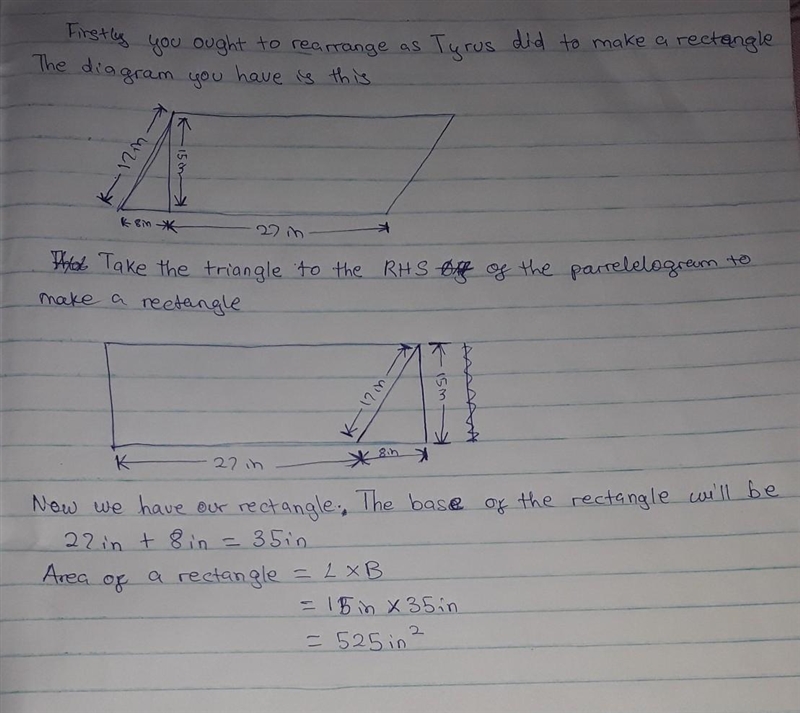 Firstly you ought to rearrange as Tyrus did to make a rectangle
The diagram you have is this
17in
15in
8in
27in
Take the triangle to the RHS of the parrelelogram to
make a rectangle
17in
15in
27in
8in
Now we have our rectangle. The base of the rectangle will be
27in + 8in = 35in
Area of a rectangle = L x B
= 15in x 35in
= 525in²